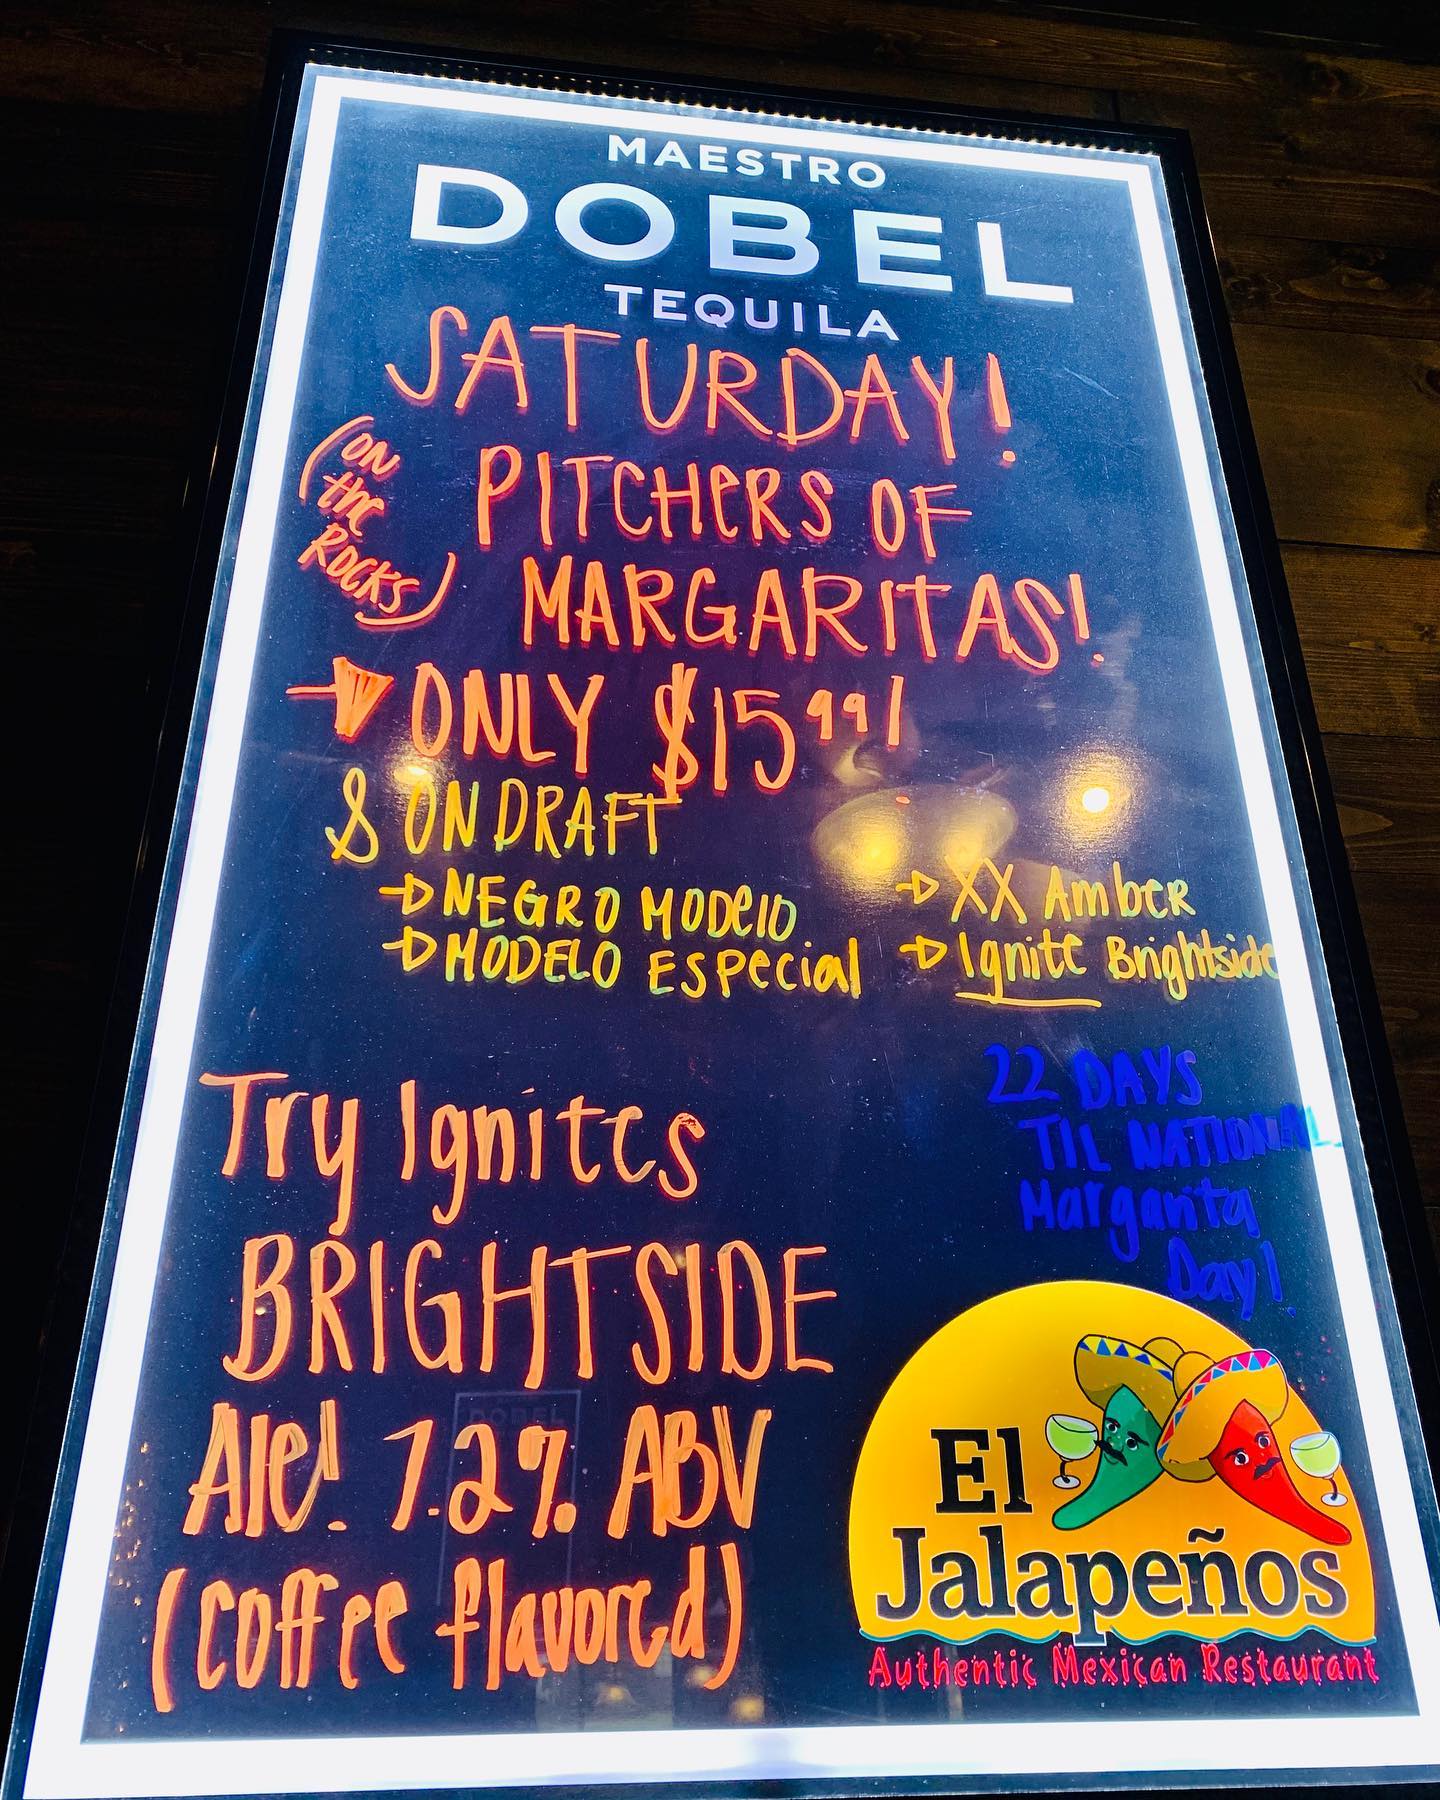 MAESTRO
DOBEL
TEQUILA
SATURDAY!
(ON
the
ROCKS)
PITCHERS OF
MARGARITAS!
ONLY $15.99!
& ON DRAFT
NEGRO MODELO
MODELO Especial
XX Amber
Ignite Brightside
22 DAYS
TIL NATIONAL
Margarita
Day!
Try Ignites
BRIGHTSIDE
Ale! 7.2% ABV
(coffee flavored)
El
Jalapeños
Authentic Mexican Restaurant